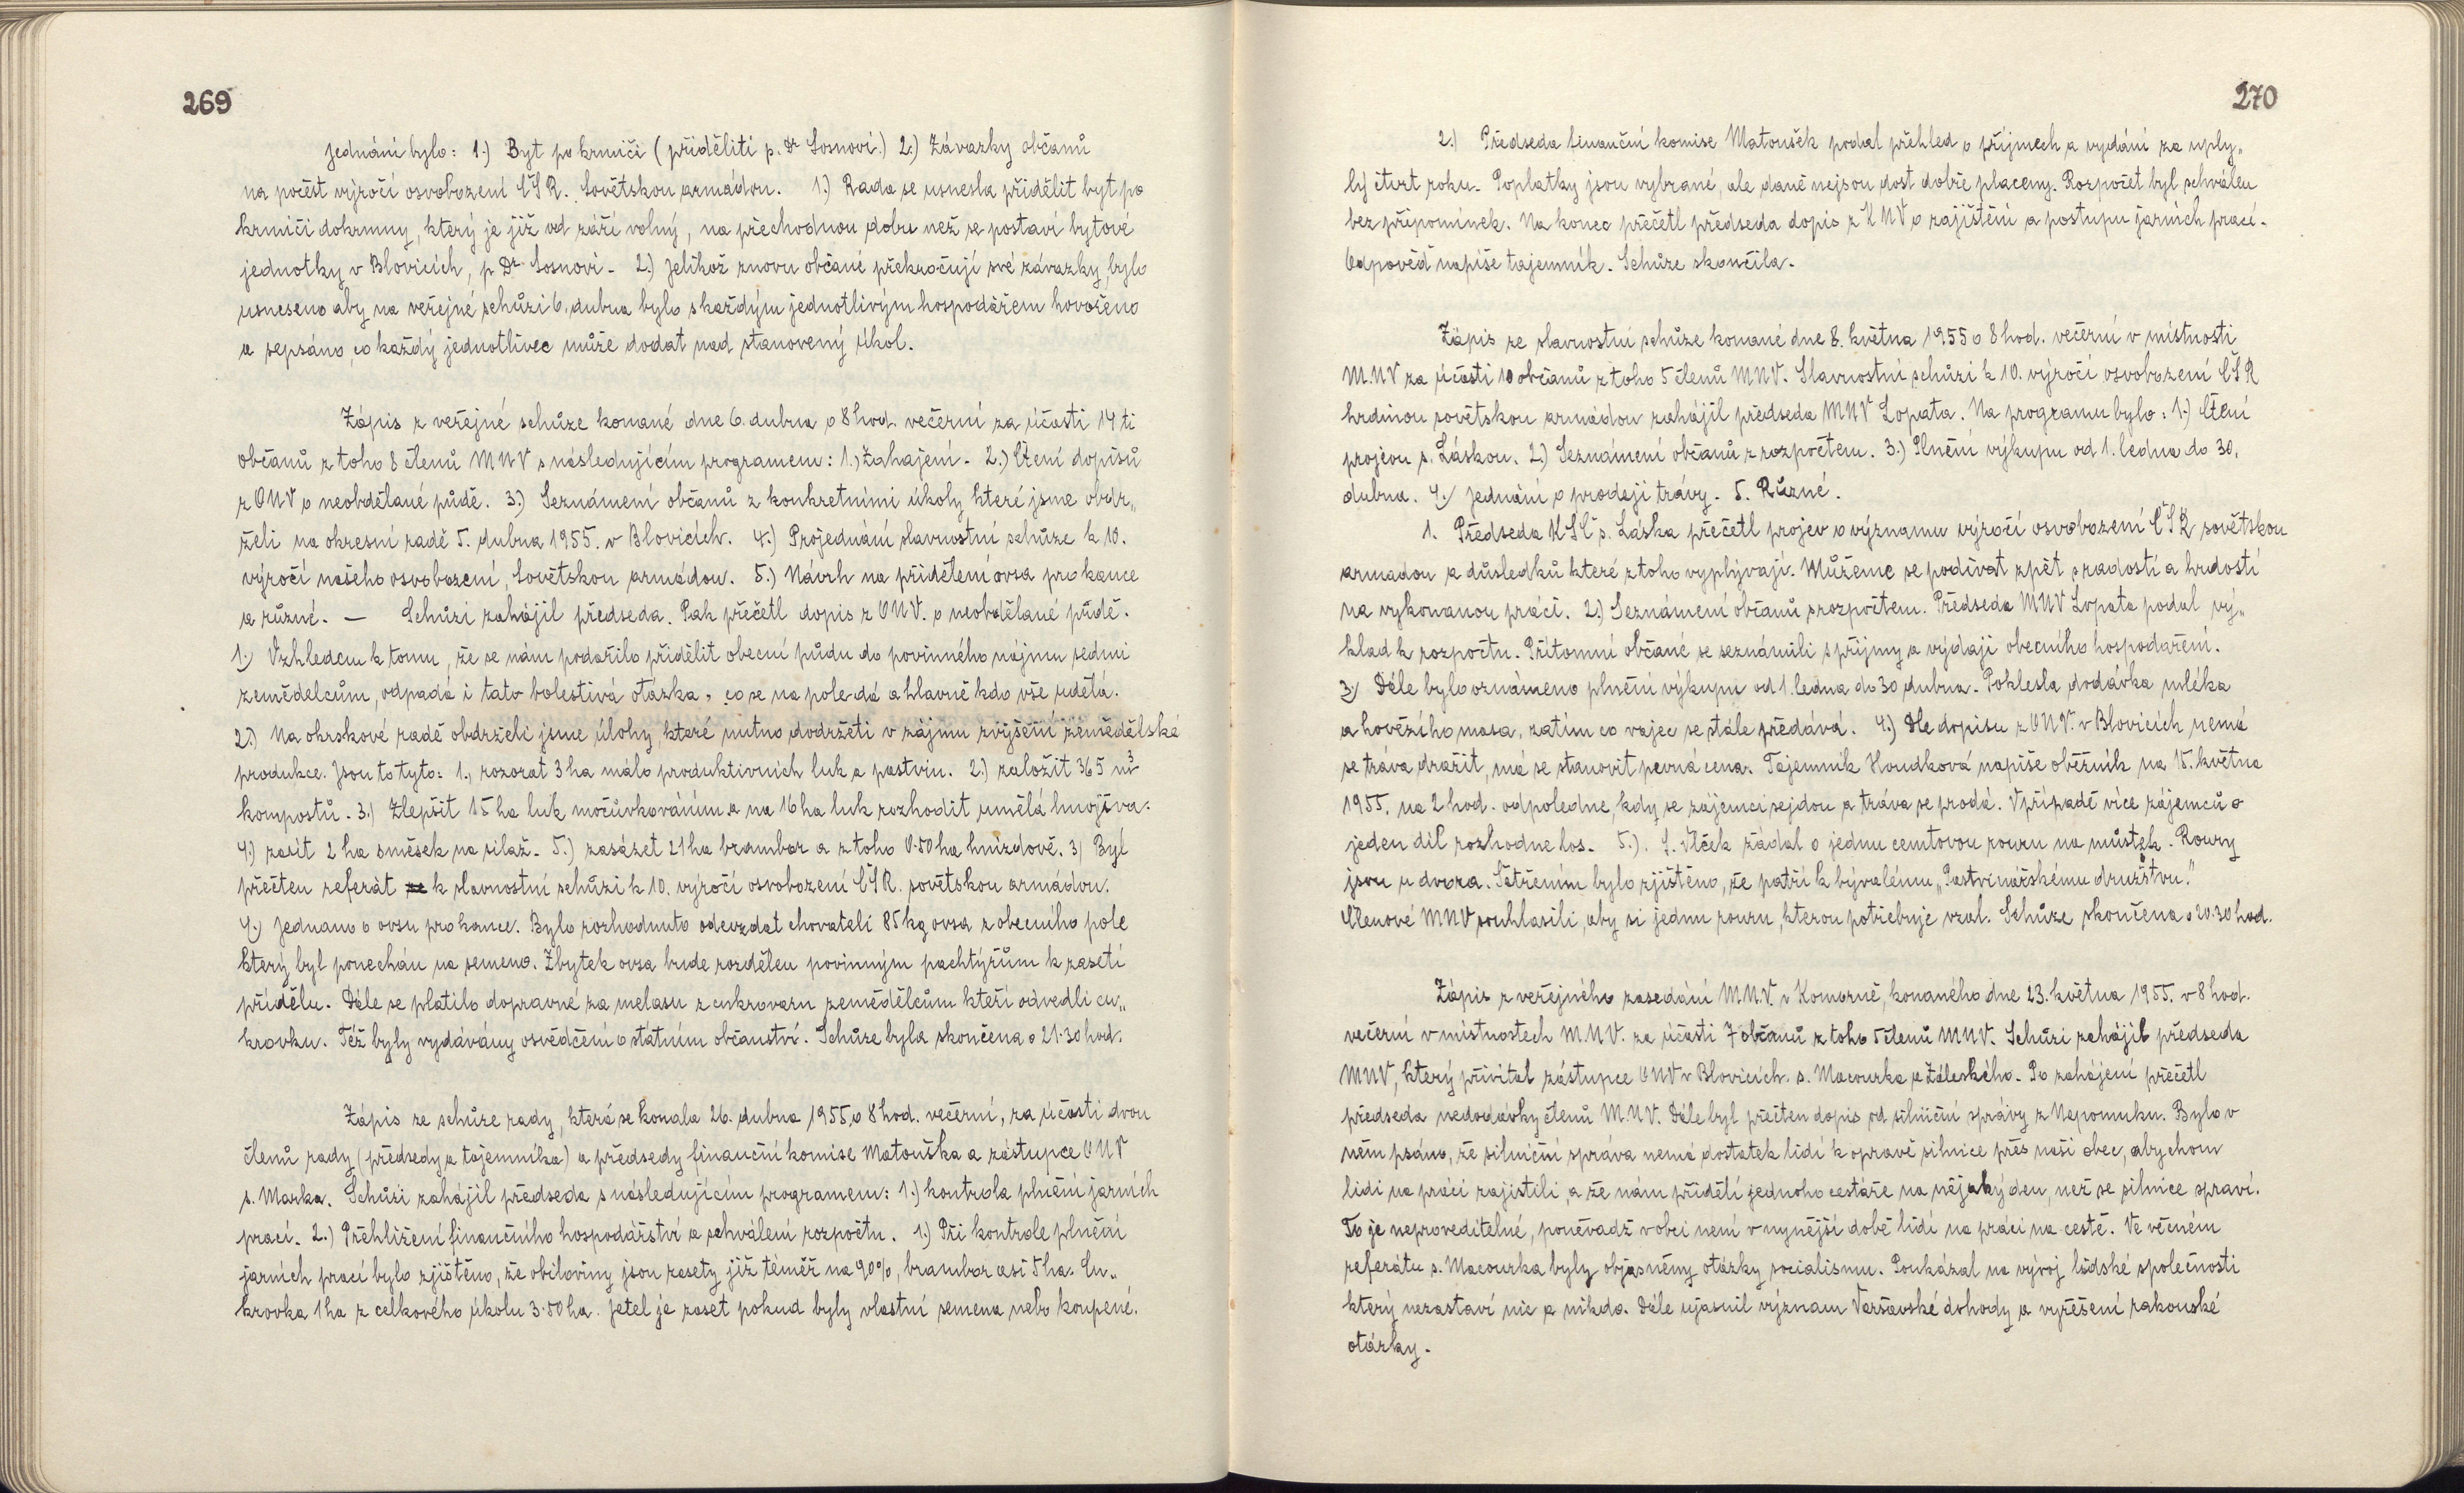 269
jednání bylo: 1.) Byt po krmiči (přiděliti p. Dr Sosnovi.) 2.) Závazky občanů
na počest výročí osvobození ČSR. Sovětskou armádou. 1.) Rada se usnesla přidělit byt po
krmiči dokrmny, který je již od září volný, na přechodnou dobu než se postaví bytové
jednotky v Blovicích, p Dr. Sosnovi. 2.) Jelikož znovu občané překročují své závazky, bylo
usneseno aby na veřejné schůzi 6. dubna bylo s každým jednotlivým hospodářem hovořeno
a sepsáno, co každý jednotlivec může dodat nad stanovený úkol.
Zápis z veřejné schůze konané dne 6. dubna o 8 hod. večerní za účasti 14 ti
občanů z toho 8 členů MNV s následujícím programem: 1.) Zahajení. 2.) Čtení dopisů
z ONV o neobdělané půdě. 3.) Seznámení občanů z konkretními úkoly které jsme obdr„
želi na okresní radě 5. dubna 1955. v Blovicích. 4.) Projednání slavnostní schůze k 10.
výročí našeho osvobození, Sovětskou armádou. 5.) Návrh na přidělení ovsa pro kance
a různé. — Schůzi zahájil předseda. Pak přečetl dopis z ONV. o neobdělané půdě.
1.) Vzhledem k tomu, že se nám podařilo přidělit obecní půdu do povinného nájmu sedmi
zemědelcům, odpadá i tato bolestivá otázka, co se na pole dá a hlavně kdo vše udělá.
2.) Na okrskové radě obdrželi jsme úlohy, které nutno dodržeti v zájmu zvýšení zemědělské
produkce. Jsou to tyto: 1., rozorat 3 ha málo produktivních luk a pastvin. 2.) založit 365 m3
kompostů. 3.) Zlepšit 15 ha luk močůvkováním a na 16 ha luk rozhodit umělá hnojiva.
4.) zasít 2 ha směsek na silaž. 5.) zasázet 21 ha brambor a z toho 0.50 ha hnízdově. 3) Byl
přečten referát k slavnostní schůzi k 10. výročí osvobození ČSR. sovětskou armádou.
4.) Jednano o ovsu pro kance. Bylo rozhodnuto odevzdat chovateli 85 kg ovsa z obecního pole
který byl ponechán na semeno. Zbytek ovsa bude rozdělen povinným pachtýřům k zasetí
přídělu. Dále se platilo dopravné za melasu z cukrovaru zemědělcům kteří odvedli cu„
krovku. Též byly vydávány osvědčení o státním občanství. Schůze byla skončena o 21.30 hod.
Zápis ze schůze rady, která se konala 26. dubna 1955, o 8 hod. večerní, za účasti dvou
členů rady (předsedy a tajemníka) a předsedy finanční komise Matouška a zástupce ONV
s. Marka. Schůzi zahájil předseda s následujícím programem: 1.) kontrola plnění jarních
prací. 2.) Přehlížení finančního hospodářství a schválení rozpočtu. 1.) Při kontrole plnění
jarních prací bylo zjištěno, že obiloviny jsou zasety již téměř na 90%, brambor asi 5 ha. Cu„
krovka 1 ha z celkového úkolu 3.50 ha. Jetel je zaset pokud byly vlastní semena nebo koupené.
270
2.) Předseda finanční komise Matoušek podal přehled o příjmech a vydání za uply„
lý čtvrt roku. Poplatky jsou vybrané, ale daně nejsou dost dobře placeny. Rozpočet byl schválen
bez připomínek. Na konec přečetl předseda dopis z KNV o zajištění a postupu jarních prací.
Odpověď napíše tajemník. Schůze skončila.
Zápis ze slavnostní schůze konané dne 8. května 1955 o 8 hod. večerní v místnosti
M.NV za účasti 10 občanů z toho 5 členů MNV. Slavnostní schůzi k 10. výročí osvobození ČSR
hrdinou sovětskou armádou zahájil předseda MNV Lopata. Na programu bylo: 1.) Čtení
projevu s. Láskou. 2.) Seznámení občanů z rozpočtem. 3.) Plnění výkupu od 1. ledna do 30.
dubna. 4.) Jednání o prodeji trávy. 5. Různé.
1. Předseda KSČ s. Láska přečetl projev o významu výročí osvobození ČSR sovětskou
armadou a důsledků které z toho vyplývají. Můžeme se podívat zpět s radostí a hrdostí
na vykonanou práci. 2.) Seznámení občanů s rozpočtem. Předseda MNV Lopata podal vý„
klad k rozpočtu. Přítomní občané se seznámili s příjmy a výdaji obecního hospodaření.
3.) Dále bylo oznámeno plnění výkupu od 1. ledna do 30 dubna. Poklesla dodávka mléka
a hovězího masa, zatím co vajec se stále předává. 4.) Dle dopisu z ONV. v Blovicích nemá
se tráva dražit, má se stanovit pevná cena. Tajemník Houdková napíše oběžník na 15. května
1955. na 2 hod. odpoledne, kdy se zájemci sejdou a tráva se prodá. V případě více zájemců o
jeden díl rozhodne los. 5.). J. Vlček žádal o jednu cemtovou rouru na můstek. Roury
jsou u dvora. Šetřením bylo zjištěno, že patří k bývalému „Pastvinářskému družstvu."
Členové MNV souhlasili, aby si jednu rouru, kterou potřebuje vzal. Schůze skončena o 20.30 hod.
Zápis z veřejného zasedání M.N.V. v Komorně, konaného dne 23. května 1955. v 8 hod.
večerní v místnostech M.NV. za účasti 7 občanů z toho 5 členů MNV. Schůzi zahájil předseda
MNV, který přivítal zástupce ONV v Blovicích. s. Macourka a Záleského. Po zahájení přečetl
předseda nedodávky členů M.NV. Dále byl přečten dopis od silniční správy z Nepomuku. Bylo v
něm psáno, že silniční správa nemá dostatek lidí k opravě silnice přes naši obec, abychom
lidi na práci zajistili, a že nám přidělí jednoho cestáře na nějaký den, než se silnice spraví.
To je neproveditelné, poněvadž v obci není v nynější době lidí na práci na cestě. Ve věcném
referátu s. Macourka byly objasněny otázky socialismu. Poukázal na vývoj lidské společnosti
který nezastaví nic a nikdo. Dále ujasnil význam Varšavské dohody a vyřešení rakouské
otázky.